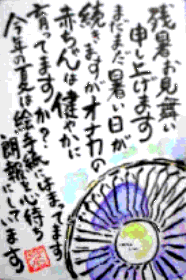 残暑お見舞い
申し上げます
まだまだ暑い日が
続きますがオナカの
赤ちゃんは健やかに
育ってますか?
今年の夏は絵手紙に
朗報を心待ち
にしてます